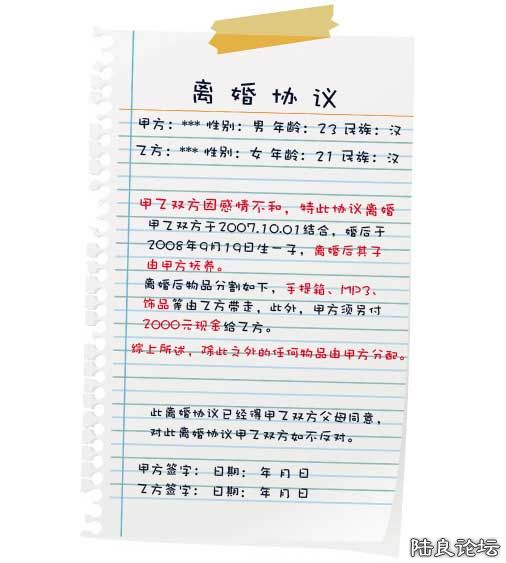 离婚协议
甲方：*** 性别：男 年龄：23 民族：汉
乙方：*** 性别：女 年龄：21 民族：汉
甲乙双方因感情不和，特此协议离婚
甲乙双方于2007.10.01结合，婚后于
2008年9月19日生一子，离婚后其子
由甲方抚养。
离婚后物品分割如下，手提箱、MP3、
饰品等由乙方带走，此外，甲方须另付
2000元现金给乙方。
综上所述，除此之外的任何物品由甲方分配。
此离婚协议已经得甲乙双方父母同意，
对此离婚协议甲乙双方如不反对。
甲方签字： 日期： 年 月 日
乙方签字： 日期： 年 月 日
陆良论坛